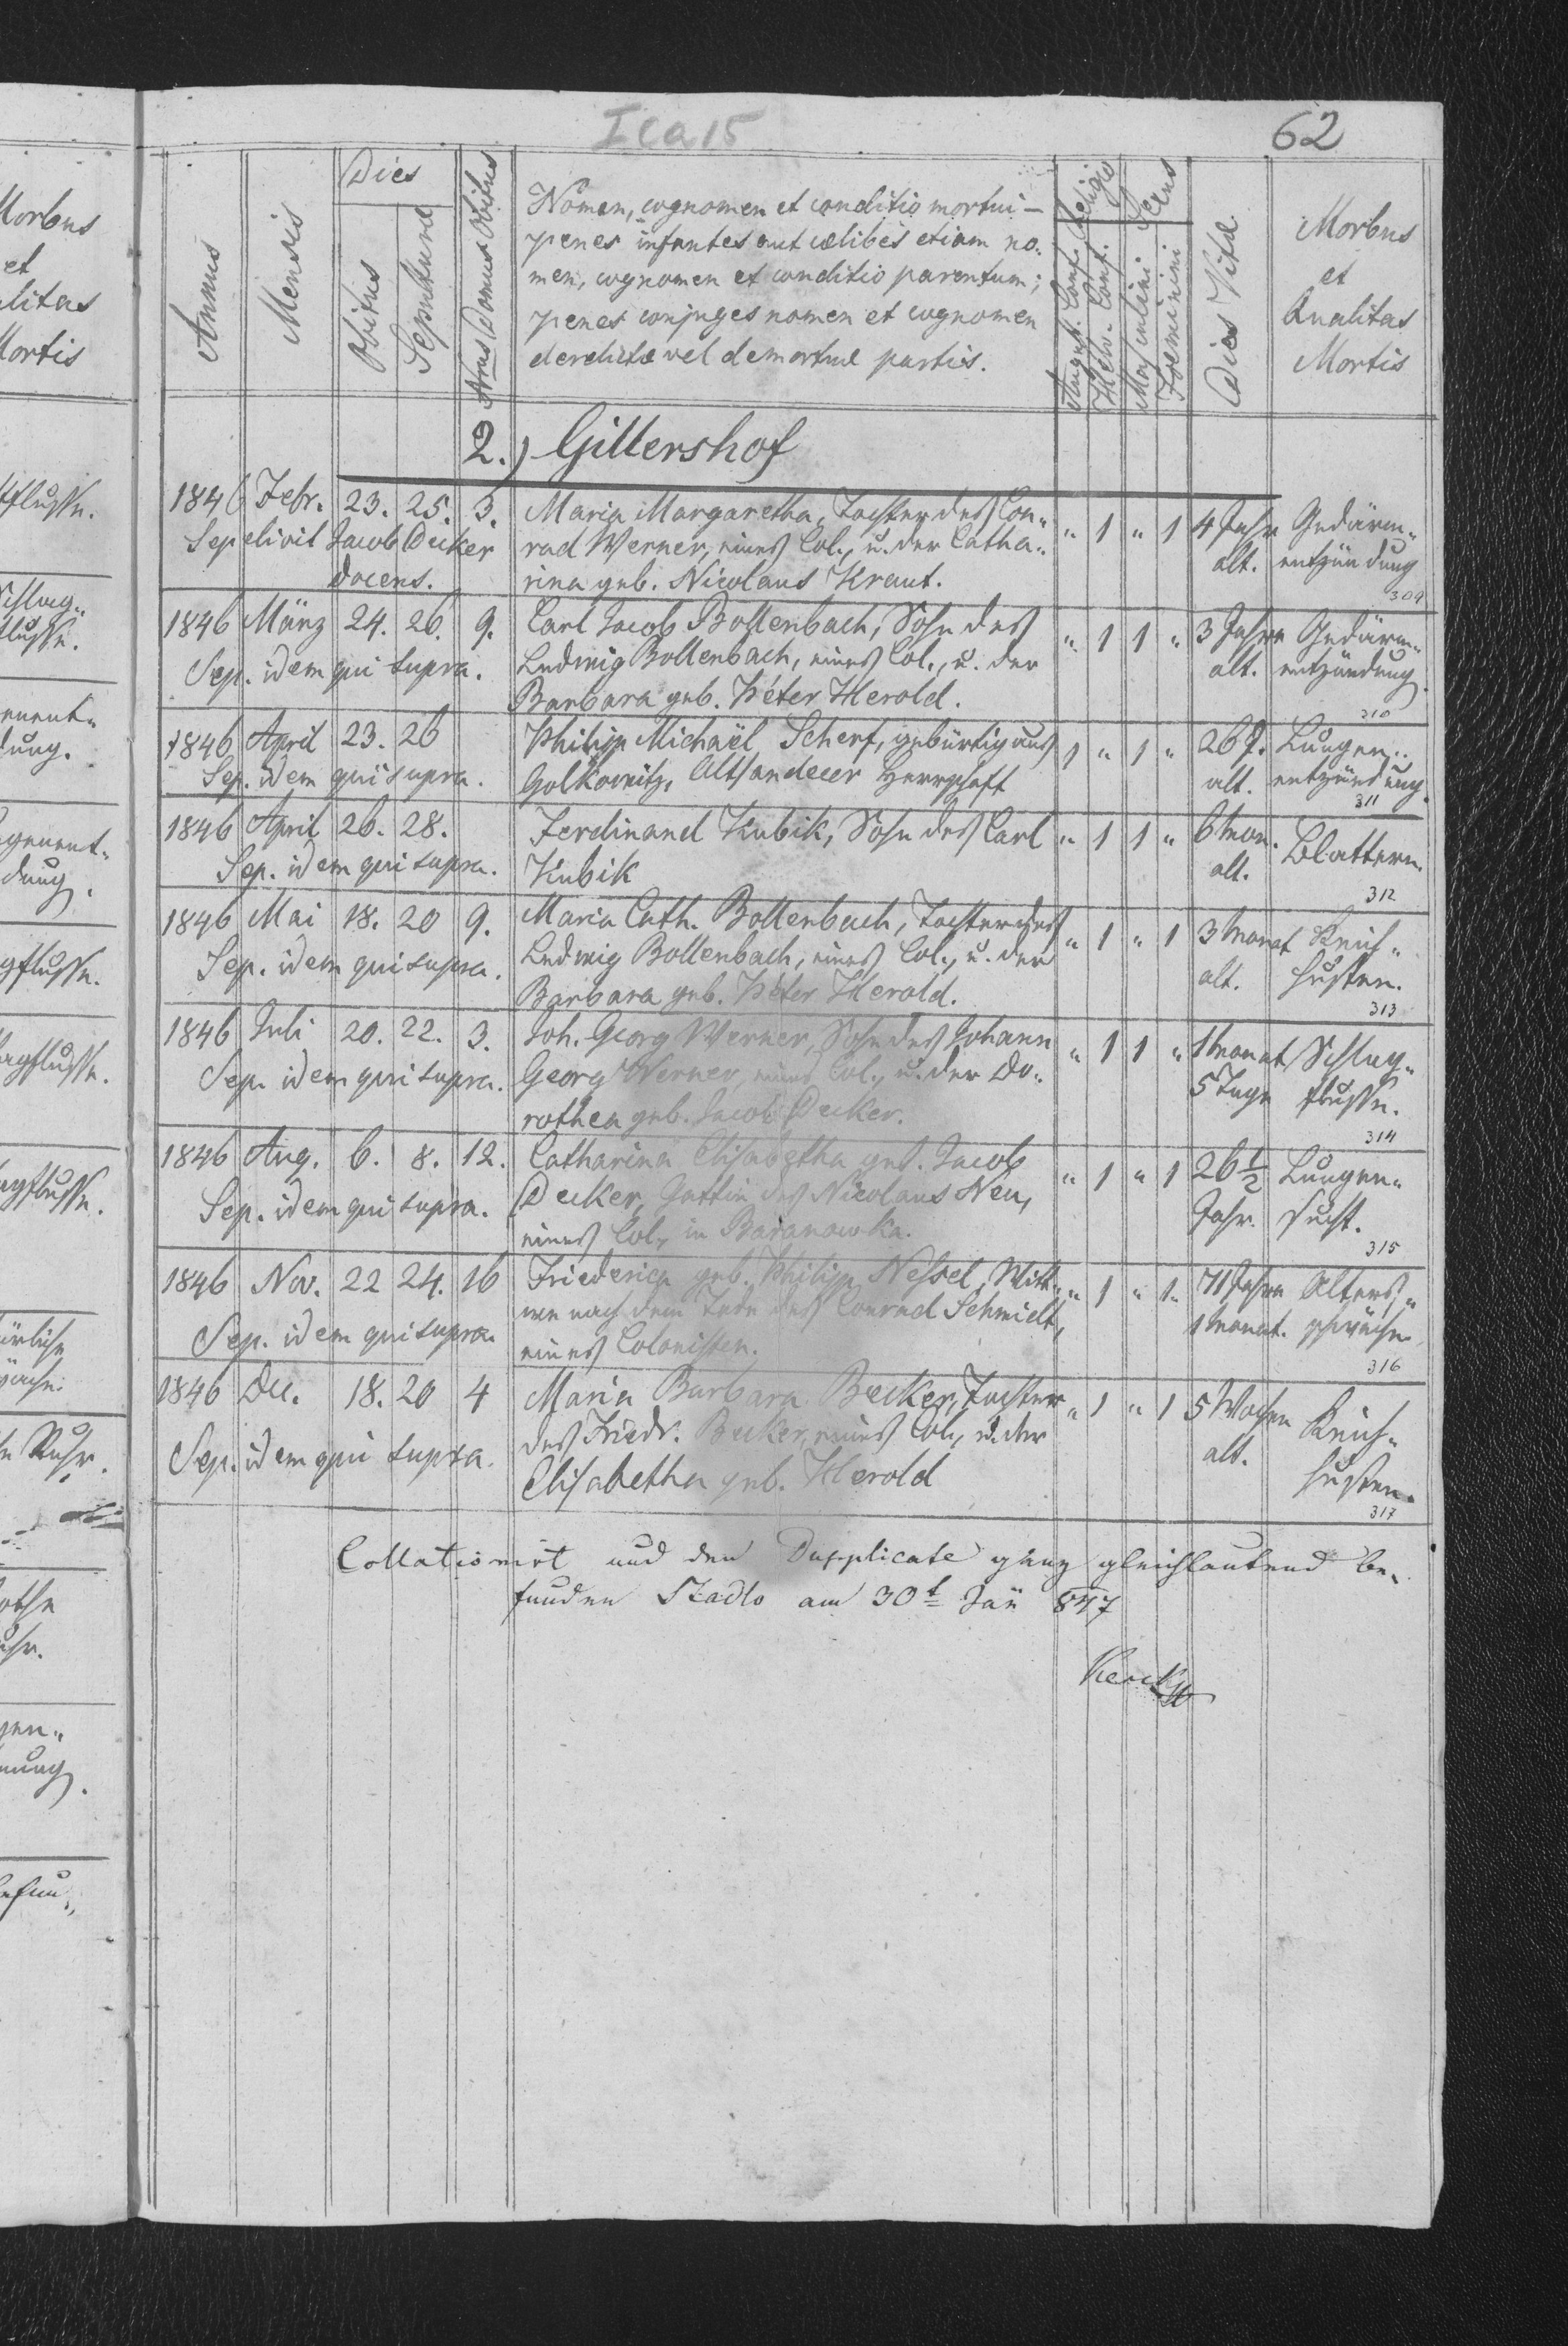 I c a 15
62
Morbus
et
Qualitas
Mortis
Annus
Mensis
Dies
Obitus
Sepulturæ
Nrus Domus Obitus
Nomen, cognomen et conditio mortui —
penes infantes aut cælibes etiam no-
men, cognomen et conditio parentum;
penes conjuges nomen et cognomen
derelictæ vel demortuæ partis.
Religio
August. Conf.
Helv. Conf.
Sexus
Masculini
Foeminini
Dies Vitæ
Morbus
et
Qualitas
Mortis
2.) Gillershof
1846 Febr. 23. 25. 3. Maria Margaretha, Tochter des Con- " 1 " 1 4 Jahr Gedärm-
Sepelivit Jacob Decker rad Werner, eines Col., u. der Catha- alt. entzündung
docens. rina geb. Nicolaus Kraut. 309
1846 März 24. 26. 9. Carl Jacob Bollenbach, Sohn des " 1 1 " 3 Jahre Gedärm-
Sep. idem qui supra. Ludwig Bollenbach, eines Col., u. der alt. entzündung.
Barbara geb. Peter Herold. 310
1846 April 23. 26 Philipp Michaël Scherf, gebürtig aus 1 " 1 " 26 J. Lungen-
Sep. idem qui supra. Golkowitz, Altsandecer Herrschaft alt. entzündung.
311
1846 April 26. 28. Ferdinand Kubik, Sohn des Carl " 1 1 " 6 Mon. Blattern.
Sep. idem qui supra. Kubik alt.
312
1846 Mai 18. 20 9. Maria Cath. Bollenbach, Tochter des " 1 " 1 3 Monat Keich-
Sep. idem qui supra. Ludwig Bollenbach, eines Col., u. der alt. husten.
Barbara geb. Peter Herold. 313
1846 Juli 20. 22. 3. Joh. Georg Werner, Sohn des Johann " 1 1 " 1 Monat Schlag-
Sep. idem qui supra. Georg Werner, eines Col., u. der Do- 5 Tage flusse.
rothea geb. Jacob Decker. 314
1846 Aug. 6. 8. 12. Catharina Elisabetha geb. Jacob " 1 " 1 26 1/2 Lungen-
Sep. idem qui supra. Decker, Gattin des Nicolaus Neu, Jahr. sucht.
eines Col., in Baranowka. 315
1846 Nov. 22 24. 16 Friederica geb. Philipp Nessel, Witt- " 1 " 1. 71 Jahre Alters-
Sep. idem qui supra. we nach dem Tode des Conrad Schmidt, 1 Monat. schwäche
eines Colonisten. 316
1846 Dec. 18. 20 4 Maria Barbara Becker, Tochter " 1 " 1 5 Wochen Keich-
Sep. idem qui supra. des Friedr. Becker, eines Col., u. der alt. husten.
Elisabetha geb. Herold 317
Collationirt und den Dupplicate ganz gleichlautend be-
funden Stadlo am 30t Jan 847